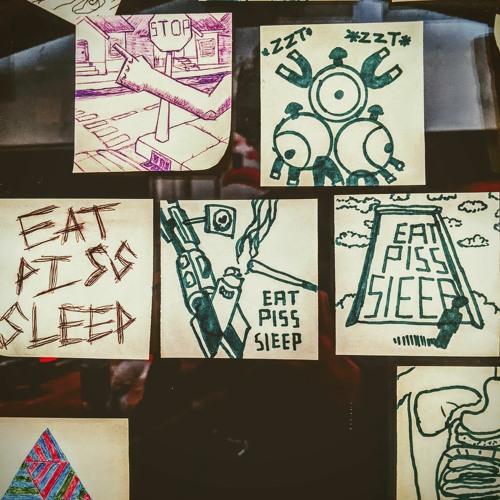 STOP
*ZZT*
*ZZT*
EAT
PISS
SLEEP
EAT
PISS
SlEEP
EAT
PISS
SlEEP